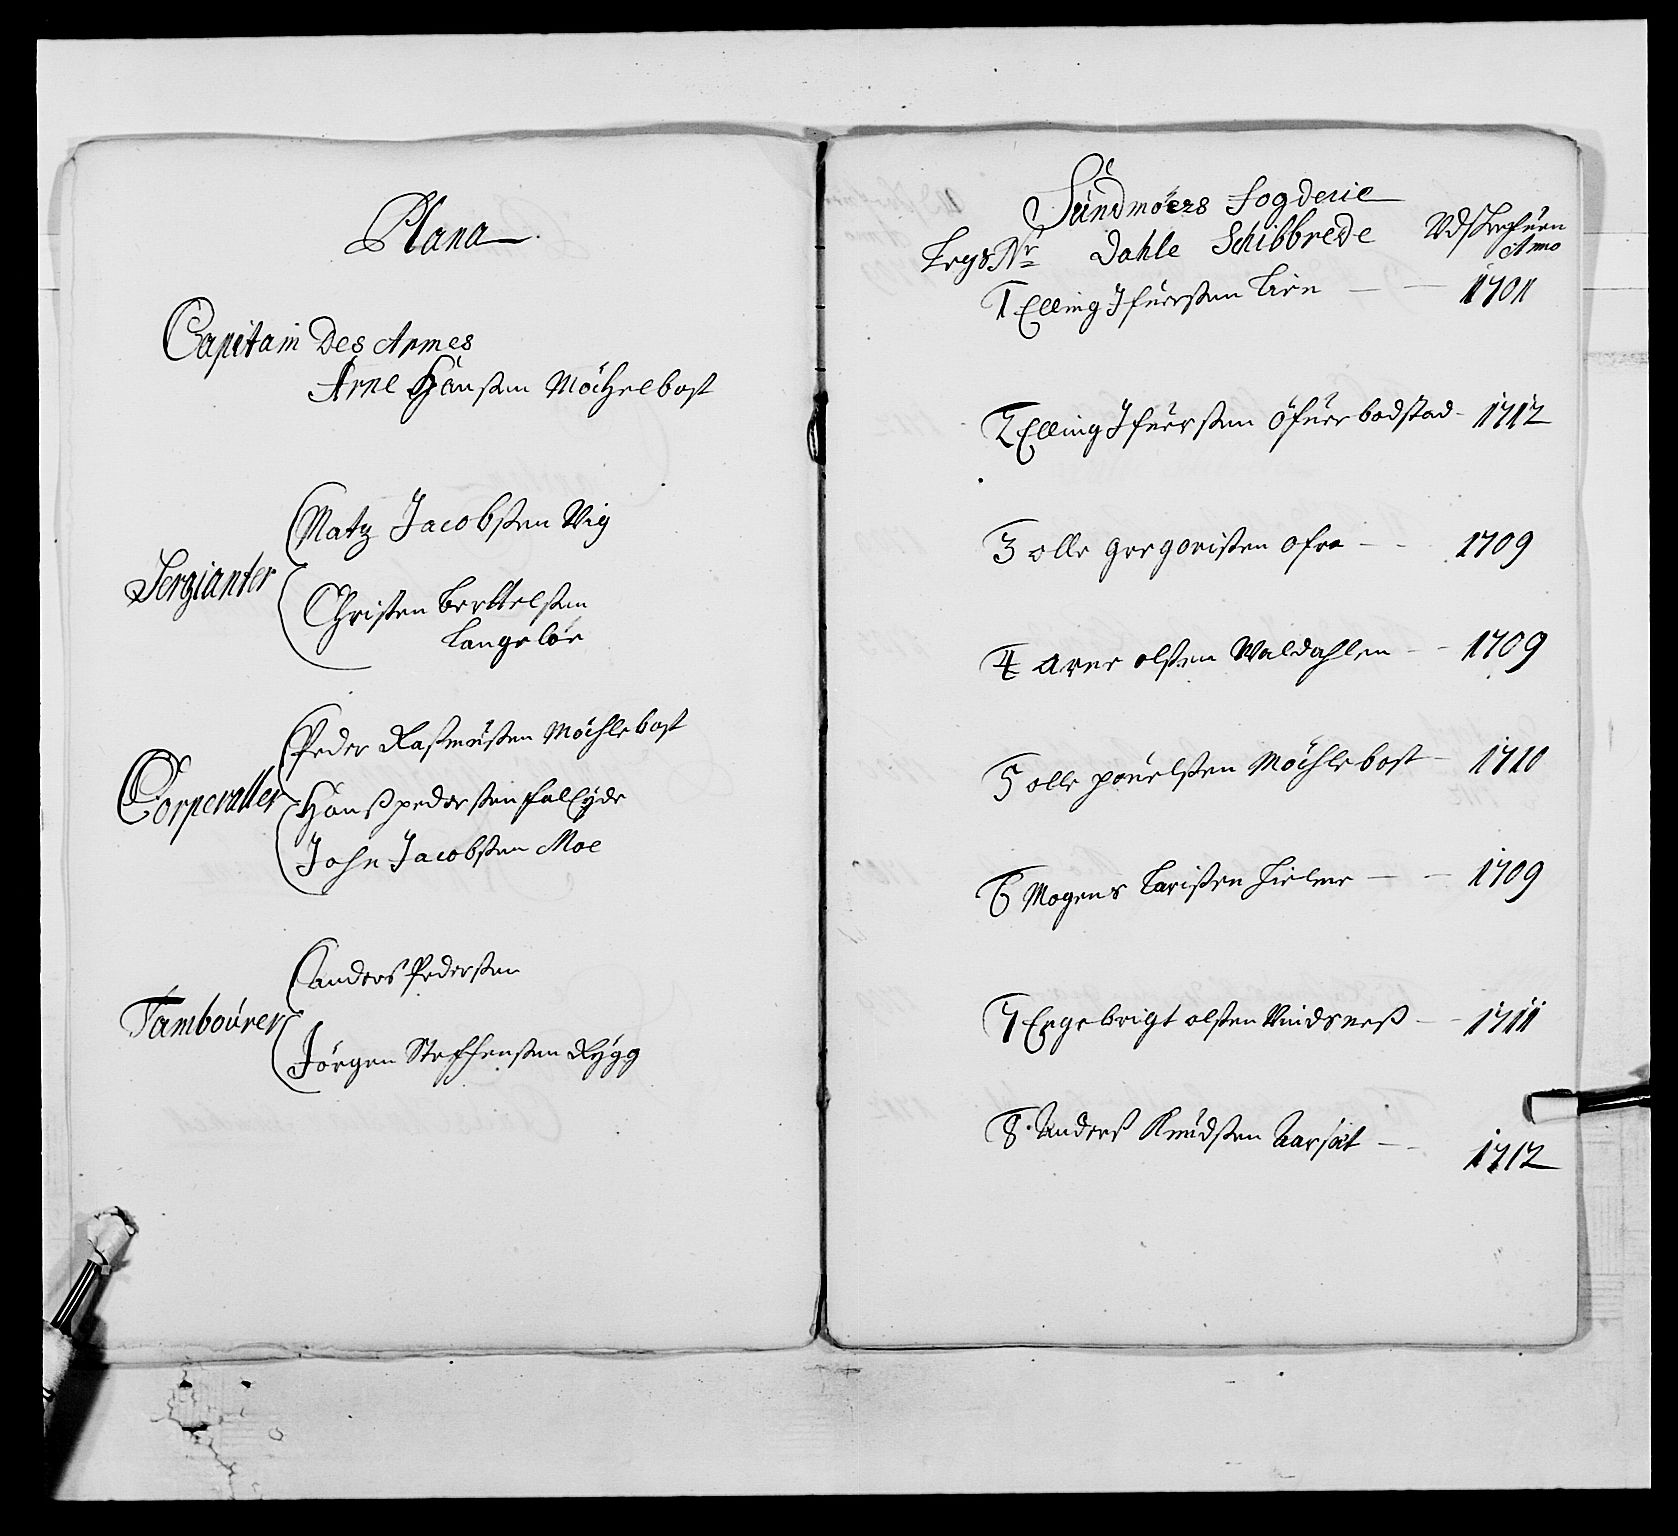 Plana
Capitain Des Armes
Arne Hansen Möchelbost
Sergianter
Matz Jacobsen Wig
Christen Berttelsen
Langeloe
Corperaller
Peder Rasmusen Möchlebost
Hanss pedersen falhyde
John Jacobsen Moe
Tambourer
anders Pedersen
Jörgen Steffensen Rygg
Sundmöers Fogderie
Legs Nr Dahle Schibbrede Udskrefuen
Anno
1 Elling Ifuersen Lien 1701
2 Elling Ifuersen öfuerbodstad 1712
3 olle gregorisen ofre 1709
4 arne olsen Waldahlen 1709
5 olle pouelsen Möchlebost 1710
6 Mogens Larisen Hielme 1709
7 Engebrigt olsen Vindsness 1711
8 Anders Knudsen Aarsæt 1712